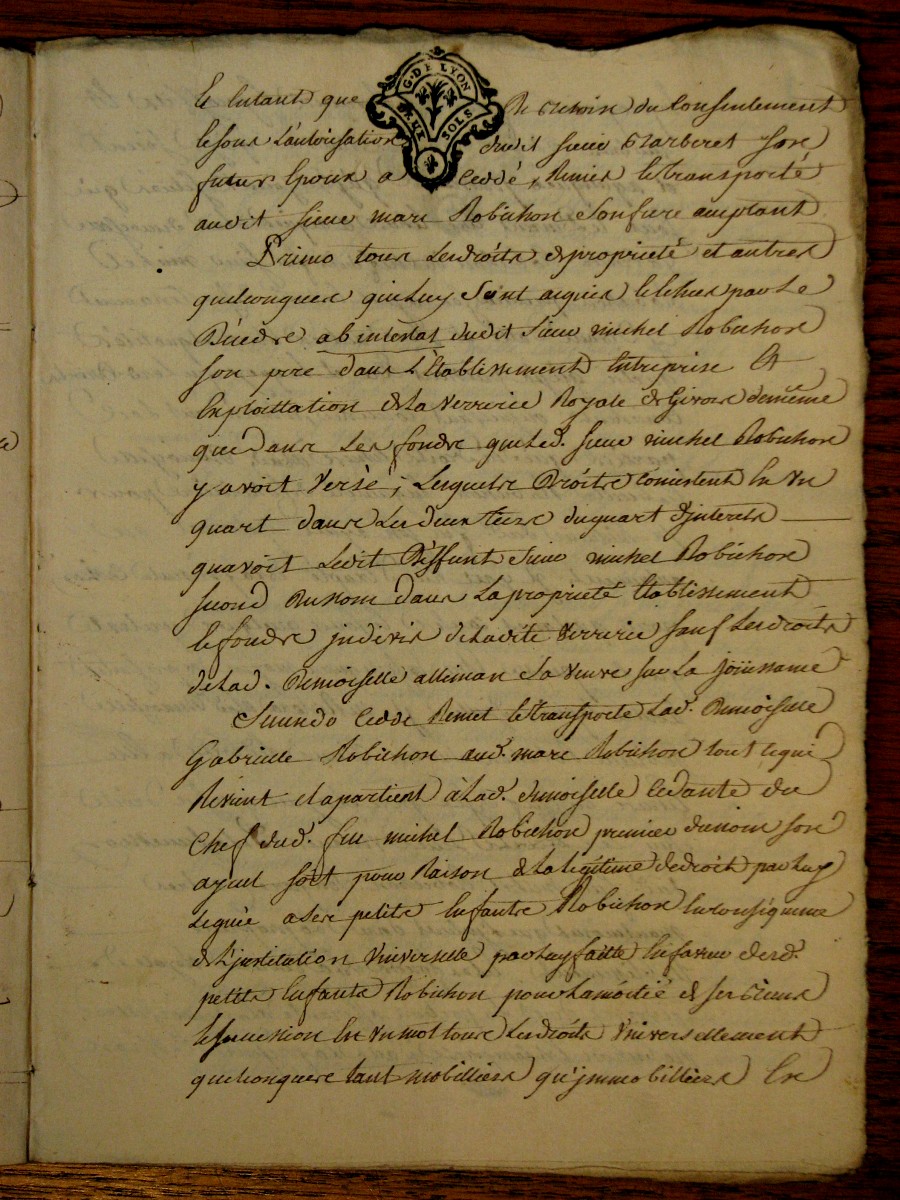 G. DE LYON
DEUX SOLS
et entant que de besoin du Consentement
et sous L'autorisation dudit sieur Barberet son
futur Epoux a Ceddé, Remis et Transporté
audit sieur marc Robichon son frere acceptant
Primo tous Les droits de proprieté et autres
quelconques qui Luy sont acquis et Echus par Le
Déceds ab intestat dudit Sieur michel Robichon
son pere dans L'Etablissement Entreprise Et
Exploittation de La Verrerie Royale de Givors de même
que dans Les fonds que Led. sieur michel Robichon
y avoit Versé; Lesquels Droits consistent En un
quart dans Les deux tiers du quart d'interets
qu'avoit Ledit Déffunt sieur michel Robichon
second du nom dans La proprieté Etablissement
et fonds jndivis de Ladite Verrerie sauf Les droits
de Lad. Demoiselle alliman sa veuve sur La joüissance
Secundo Cedde Remet et Transporte Lad. Demoiselle
Gabrielle Robichon aud. marc Robichon tout ce qui
Revient et apartient à Lad. demoiselle Cedante du
Chef dud. feu michel Robichon premier du nom son
ayeul soit pour Raison de La Legitime de droit par Luy
Leguée a ses petits Enfants Robichon En consequence
de L'jnstitution Universelle par Luy faitte En faveur desd.
petits Enfants Robichon pour La moitié de ses Biens
et sucession En un mot tous Les droits Universellement
quelconques tant mobilliers qu'jmmobilliers En